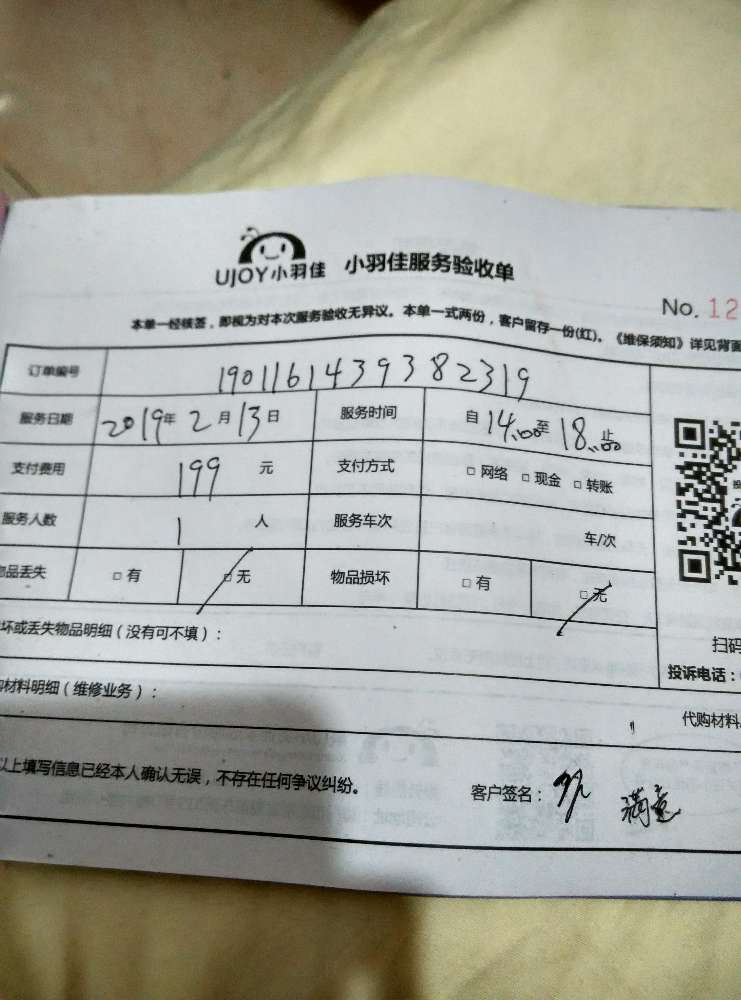 UJOY小羽佳 小羽佳服务验收单
No. 12
本单一经核签，即视为对本次服务验收无异议。本单一式两份，客户留存一份(红)。《维保须知》详见背面
订单编号 1901161439382319
服务日期 2019年 2月 13日 服务时间 自 14:00至 18:00止
支付费用 199 元 支付方式 □ 网络 □ 现金 □ 转账
服务人数 1 人 服务车次 车/次
物品丢失 □ 有 □ 无 物品损坏 □ 有 □ 无
坏或丢失物品明细（没有可不填）：
扫码
投诉电话：
材料明细（维修业务）：
代购材料
以上填写信息已经本人确认无误，不存在任何争议纠纷。
客户签名： 满意